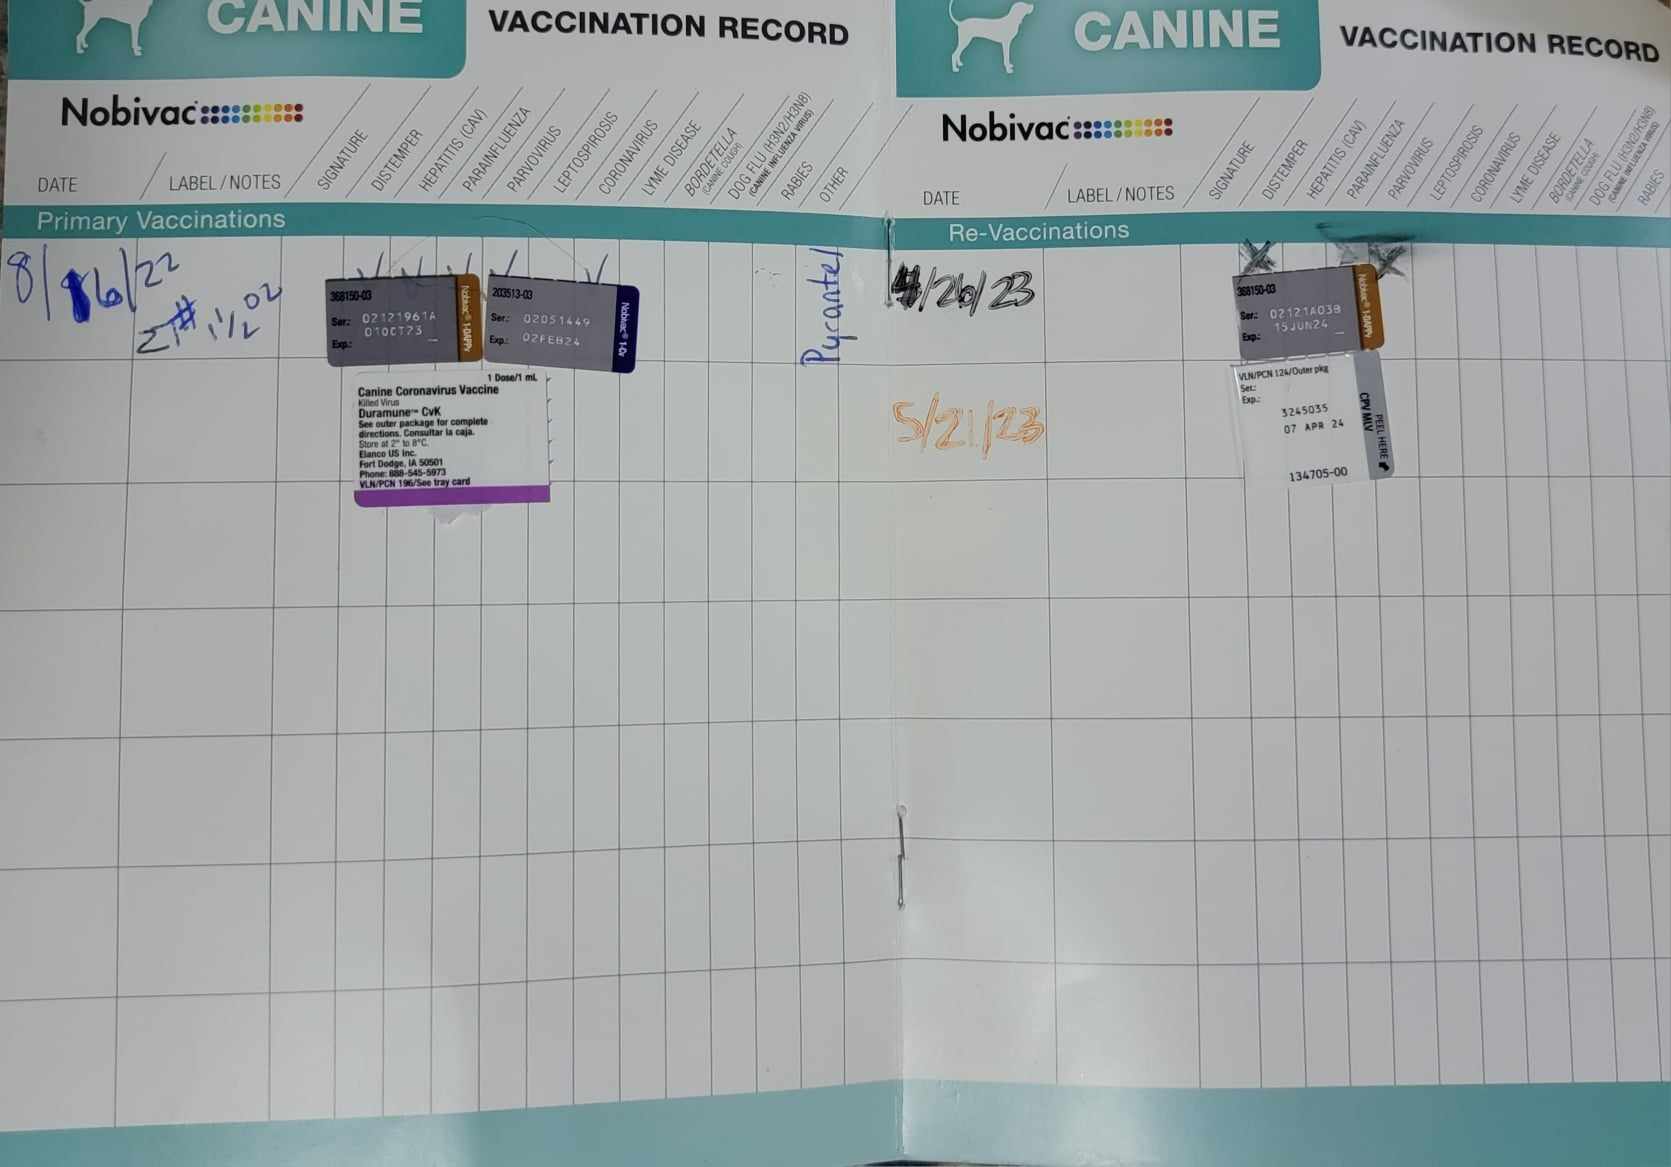 CANINE
VACCINATION RECORD
Nobivac
DATE
LABEL / NOTES
SIGNATURE
DISTEMPER
HEPATITIS (CAV)
PARAINFLUENZA
PARVOVIRUS
LEPTOSPIROSIS
CORONAVIRUS
LYME DISEASE
BORDETELLA
(CANINE COUGH)
DOG FLU (H3N2/H3N8)
(CANINE INFLUENZA VIRUS)
RABIES
OTHER
Primary Vaccinations
8/16/22
# 1 1/2 oz
368150-03
Ser.: 02121961A
01OCT23
Exp.:
Nobivac® 1-DAPPv
203513-03
Ser.: 02051449
Exp.: 02FEB24
Nobivac® 1-Cv
Pyrantel
1 Dose/1 mL
Canine Coronavirus Vaccine
Killed Virus
Duramune™ CvK
See outer package for complete
directions. Consultar la caja.
Store at 2° to 8°C.
Elanco US Inc.
Fort Dodge, IA 50501
Phone: 888-545-5973
VLN/PCN 196/See tray card
CANINE
VACCINATION RECORD
Nobivac
DATE
LABEL / NOTES
SIGNATURE
DISTEMPER
HEPATITIS (CAV)
PARAINFLUENZA
PARVOVIRUS
LEPTOSPIROSIS
CORONAVIRUS
LYME DISEASE
BORDETELLA
(CANINE COUGH)
DOG FLU (H3N2/H3N8)
(CANINE INFLUENZA VIRUS)
RABIES
Re-Vaccinations
4/26/23
368150-03
Ser.: 02121A03B
15JUN24
Exp.:
Nobivac® 1-DAPPv
5/21/23
VLN/PCN 124/Outer pkg
Ser.:
Exp.:
3245035
07 APR 24
134705-00
CPV MLV
PEEL HERE